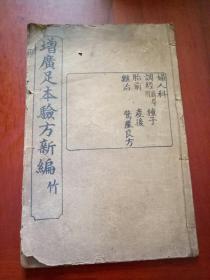 婦人科
調經 種子
胎前 產後
雜治 良方
增廣足本驗方新編 竹